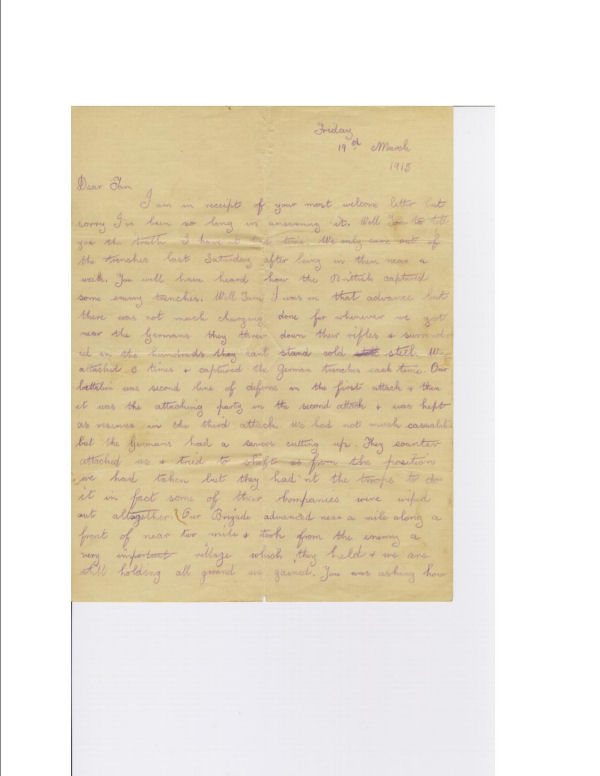 Friday
19th March
1915
Dear Tam
I am in receipt of your most welcome letter but
sorry I've been so long in answering it. Well Tam to tell
you the truth I have not had time. We only came out of
the trenches last Saturday after being in them near a
week. You will have heard how the British captured
some enemy trenches. Well Tam I was in that advance but
there was not much charging done for whenever we got
near the Germans they threw down their rifles & surrend-
ed in the hundreds they cant stand cold steel. We
attacked 3 times & captured the German trenches each time. Our
battalion was second line of defence in the first attack & then
it was the attacking party in the second attack & was kept
as reserves in the third attack. We had not much casualties
but the Germans had a serious cutting up. They counter
attacked us & tried to shift us from the positions
we had taken but they had'nt the troops to do
it in fact some of their Companies were wiped
out altogether. Our Brigade advanced near a mile along a
front of near two miles & took from the enemy a
very important village which they held & we are
still holding all ground we gained. You was asking how